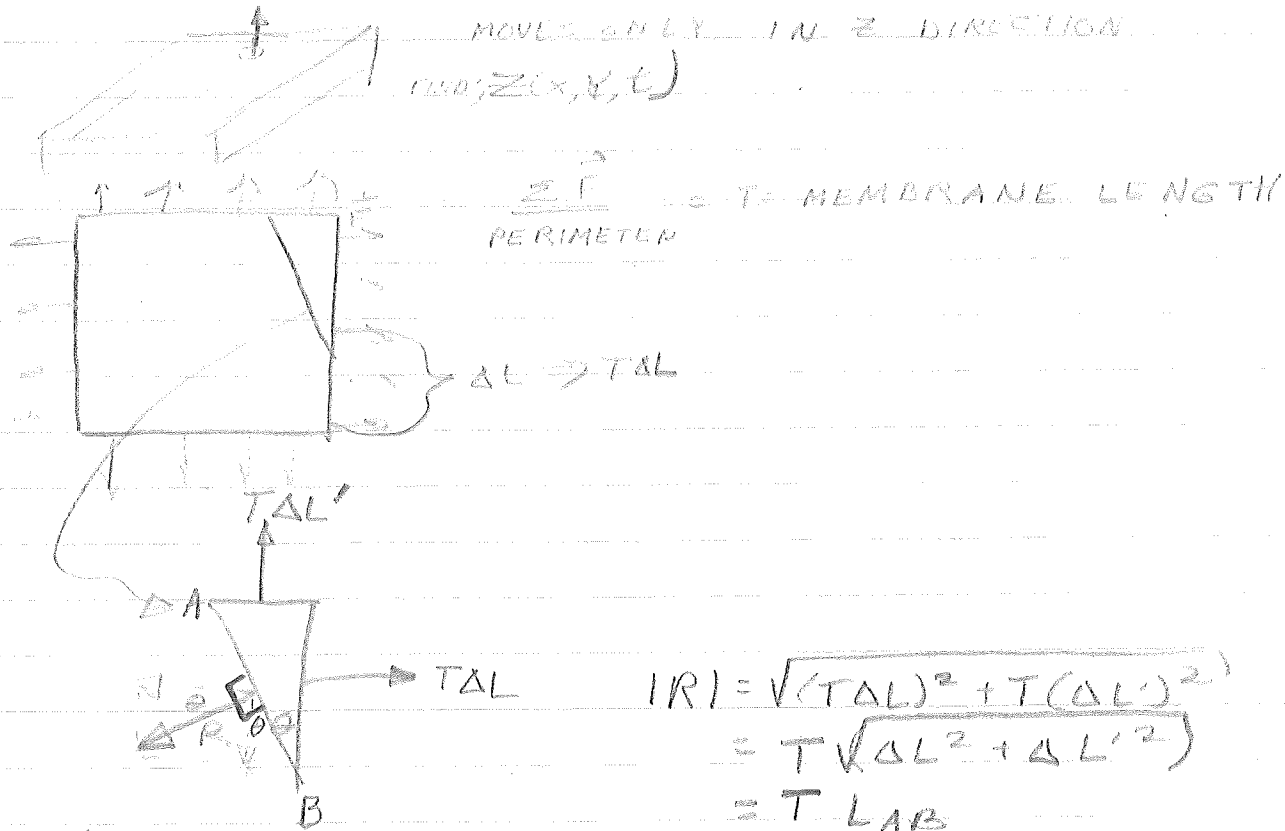 MOVES ONLY IN Z DIRECTION
Z(x, y, t)
ΣF⃗ / PERIMETER = T = MEMBRANE LENGTH
ΔL ⇒ TΔL
TΔL'
A
TΔL
|R| = √((TΔL)² + T(ΔL')²)
θ
R
θ θ
= T √(ΔL² + ΔL'²)
B
= T L_AB